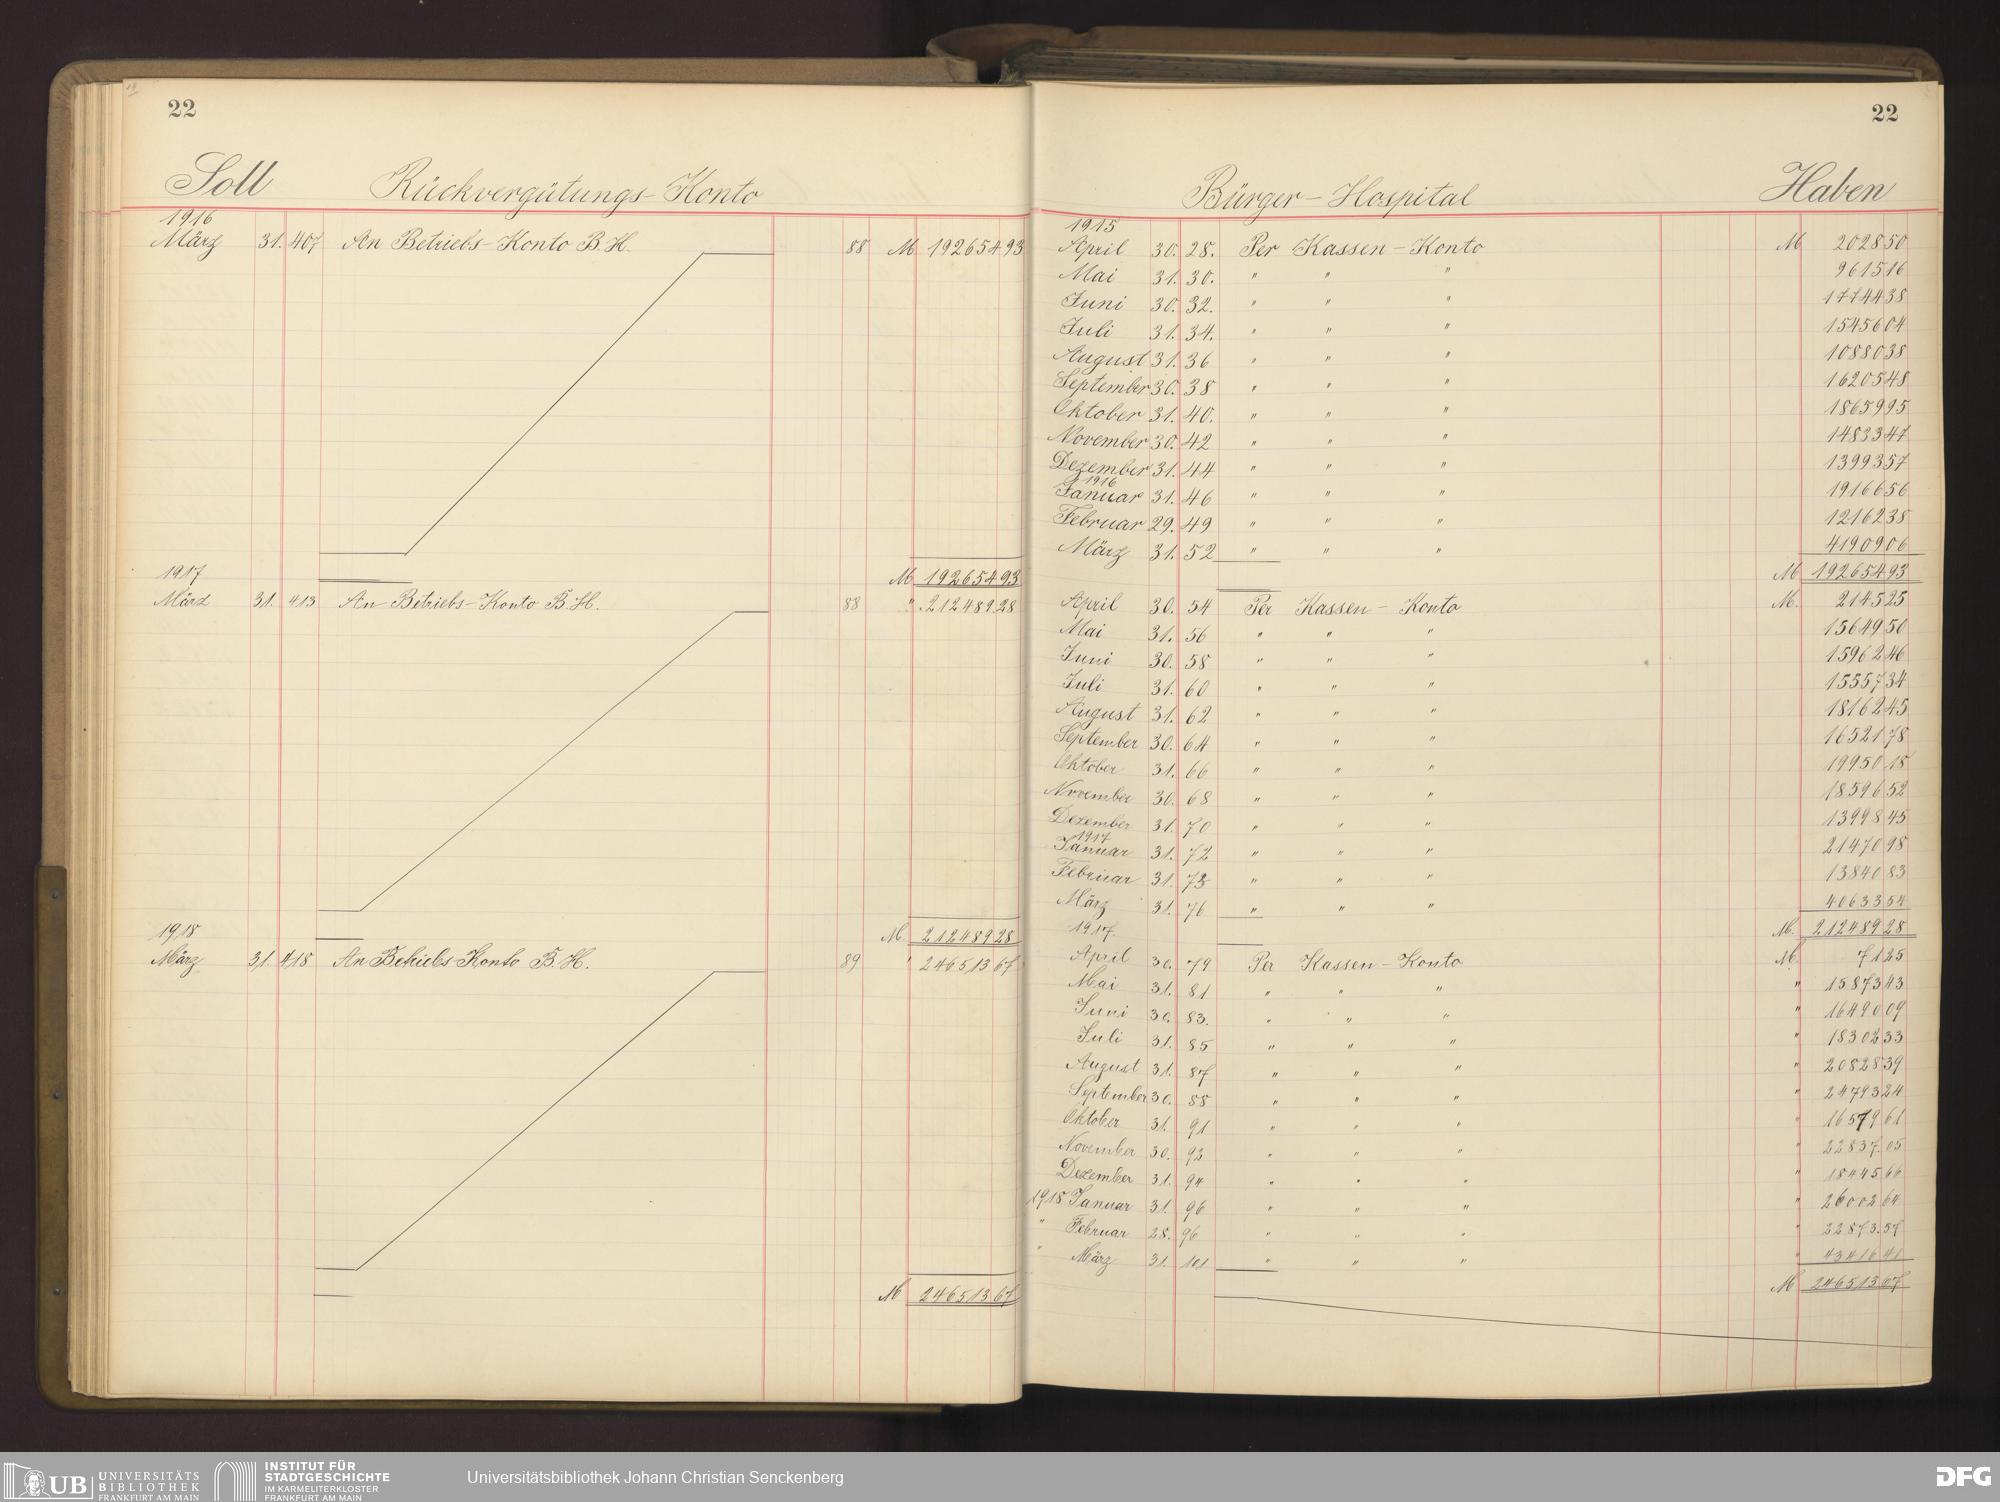 22
Soll Rückvergütungs-Konto
1916
März 31. 407 An Betriebs-Konto B.H. 88 M 192654 93
M 192654 93
1917
März 31. 413 An Betriebs-Konto B.H. 88 " 212489 28
M. 212489 28
1918
März 31. 418 An Betriebs-Konto B.H. 89 " 246513 67
M 246513 67
22
Bürger-Hospital Haben
1915
April 30. 28. Per Kassen-Konto M 2028 50
Mai 31. 30. " " " 9615 16
Juni 30. 32. " " " 17744 38
Juli 31. 34. " " " 15456 04
August 31. 36 " " " 10880 38
September 30. 38 " " " 16205 48
Oktober 31. 40. " " " 18659 95
November 30. 42 " " " 14833 47
Dezember 31. 44 " " " 13993 57
1916
Januar 31. 46 " " " 19166 56
Februar 29. 49 " " " 12162 38
März 31. 52 " " " 41909 06
M 192654 93
April 30. 54 Per Kassen-Konto M. 2145 25
Mai 31. 56 " " " 15649 50
Juni 30. 58 " " " 15962 46
Juli 31. 60 " " " 15557 34
August 31. 62 " " " 18162 45
September 30. 64 " " " 16521 78
Oktober 31. 66 " " " 19950 18
November 30. 68 " " " 18596 52
Dezember 31. 70 " " " 13998 45
1917
Januar 31. 72 " " " 21470 98
Februar 31. 73 " " " 13840 83
März 31. 76 " " " 40633 54
M. 212489 28
1917.
April 30. 79 Per Kassen-Konto M. 71 25
Mai 31. 81 " " " " 15873 43
Juni 30. 83. " " " " 16490 09
Juli 31. 85 " " " " 18302 33
August 31. 87 " " " " 20828 39
September 30. 88 " " " " 24793 24
Oktober 31. 91 " " " " 16579 61
November 30. 93 " " " " 22837.05
Dezember 31. 94 " " " " 18445 66
1918 Januar 31. 96 " " " " 26002 64
" Februar 28. 96 " " " " 22873.57
" März 31. 101 " " " " 43416 41
M 246513 67
UB UNIVERSITÄTS
BIBLIOTHEK
FRANKFURT AM MAIN
INSTITUT FÜR
STADTGESCHICHTE
IM KARMELITERKLOSTER
FRANKFURT AM MAIN
Universitätsbibliothek Johann Christian Senckenberg
DFG